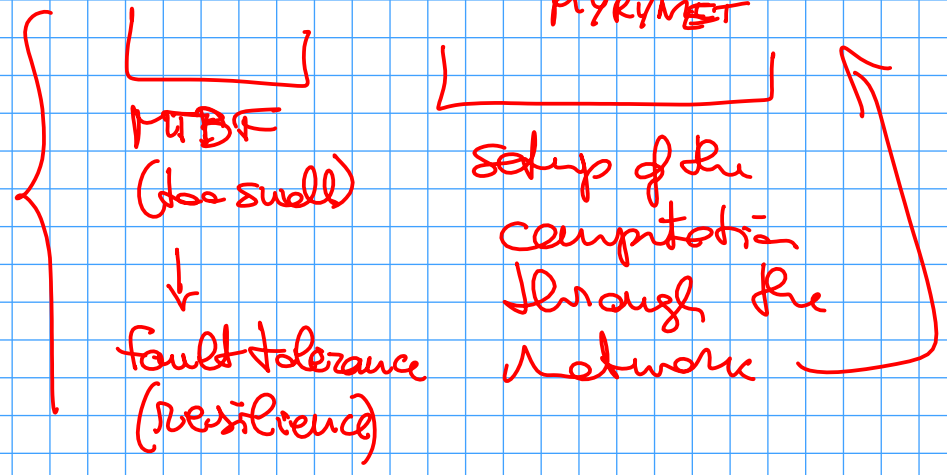 MYRYNET
MTBF
(too small)
fault tolerance
(resilience)
setup of the
computation
through the
network